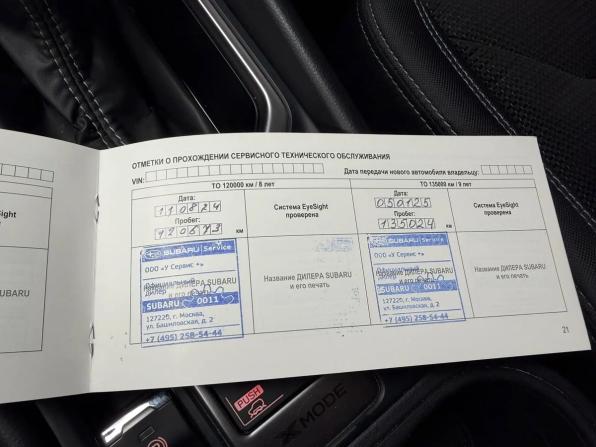 ОТМЕТКИ О ПРОХОЖДЕНИИ СЕРВИСНОГО ТЕХНИЧЕСКОГО ОБСЛУЖИВАНИЯ
VIN:
Дата передачи нового автомобиля владельцу:
ТО 120000 км / 8 лет
ТО 135000 км / 9 лет
Дата:
110824
Пробег:
120673 км
Система EyeSight
проверена
Дата:
050125
Пробег:
135024 км
Система EyeSight
проверена
Sight
SUBARU Service
ООО «У Сервис +»
Официальный
дилер
SUBARU 0011
127220, г. Москва,
ул. Башиловская, д. 2
+7 (495) 258-54-44
Название ДИЛЕРА SUBARU
и его печать
SUBARU Service
ООО «У Сервис +»
Официальный
дилер
SUBARU 0011
127220, г. Москва,
ул. Башиловская, д. 2
+7 (495) 258-54-44
Название ДИЛЕРА SUBARU
и его печать
SUBARU
21
PUSH
X MODE